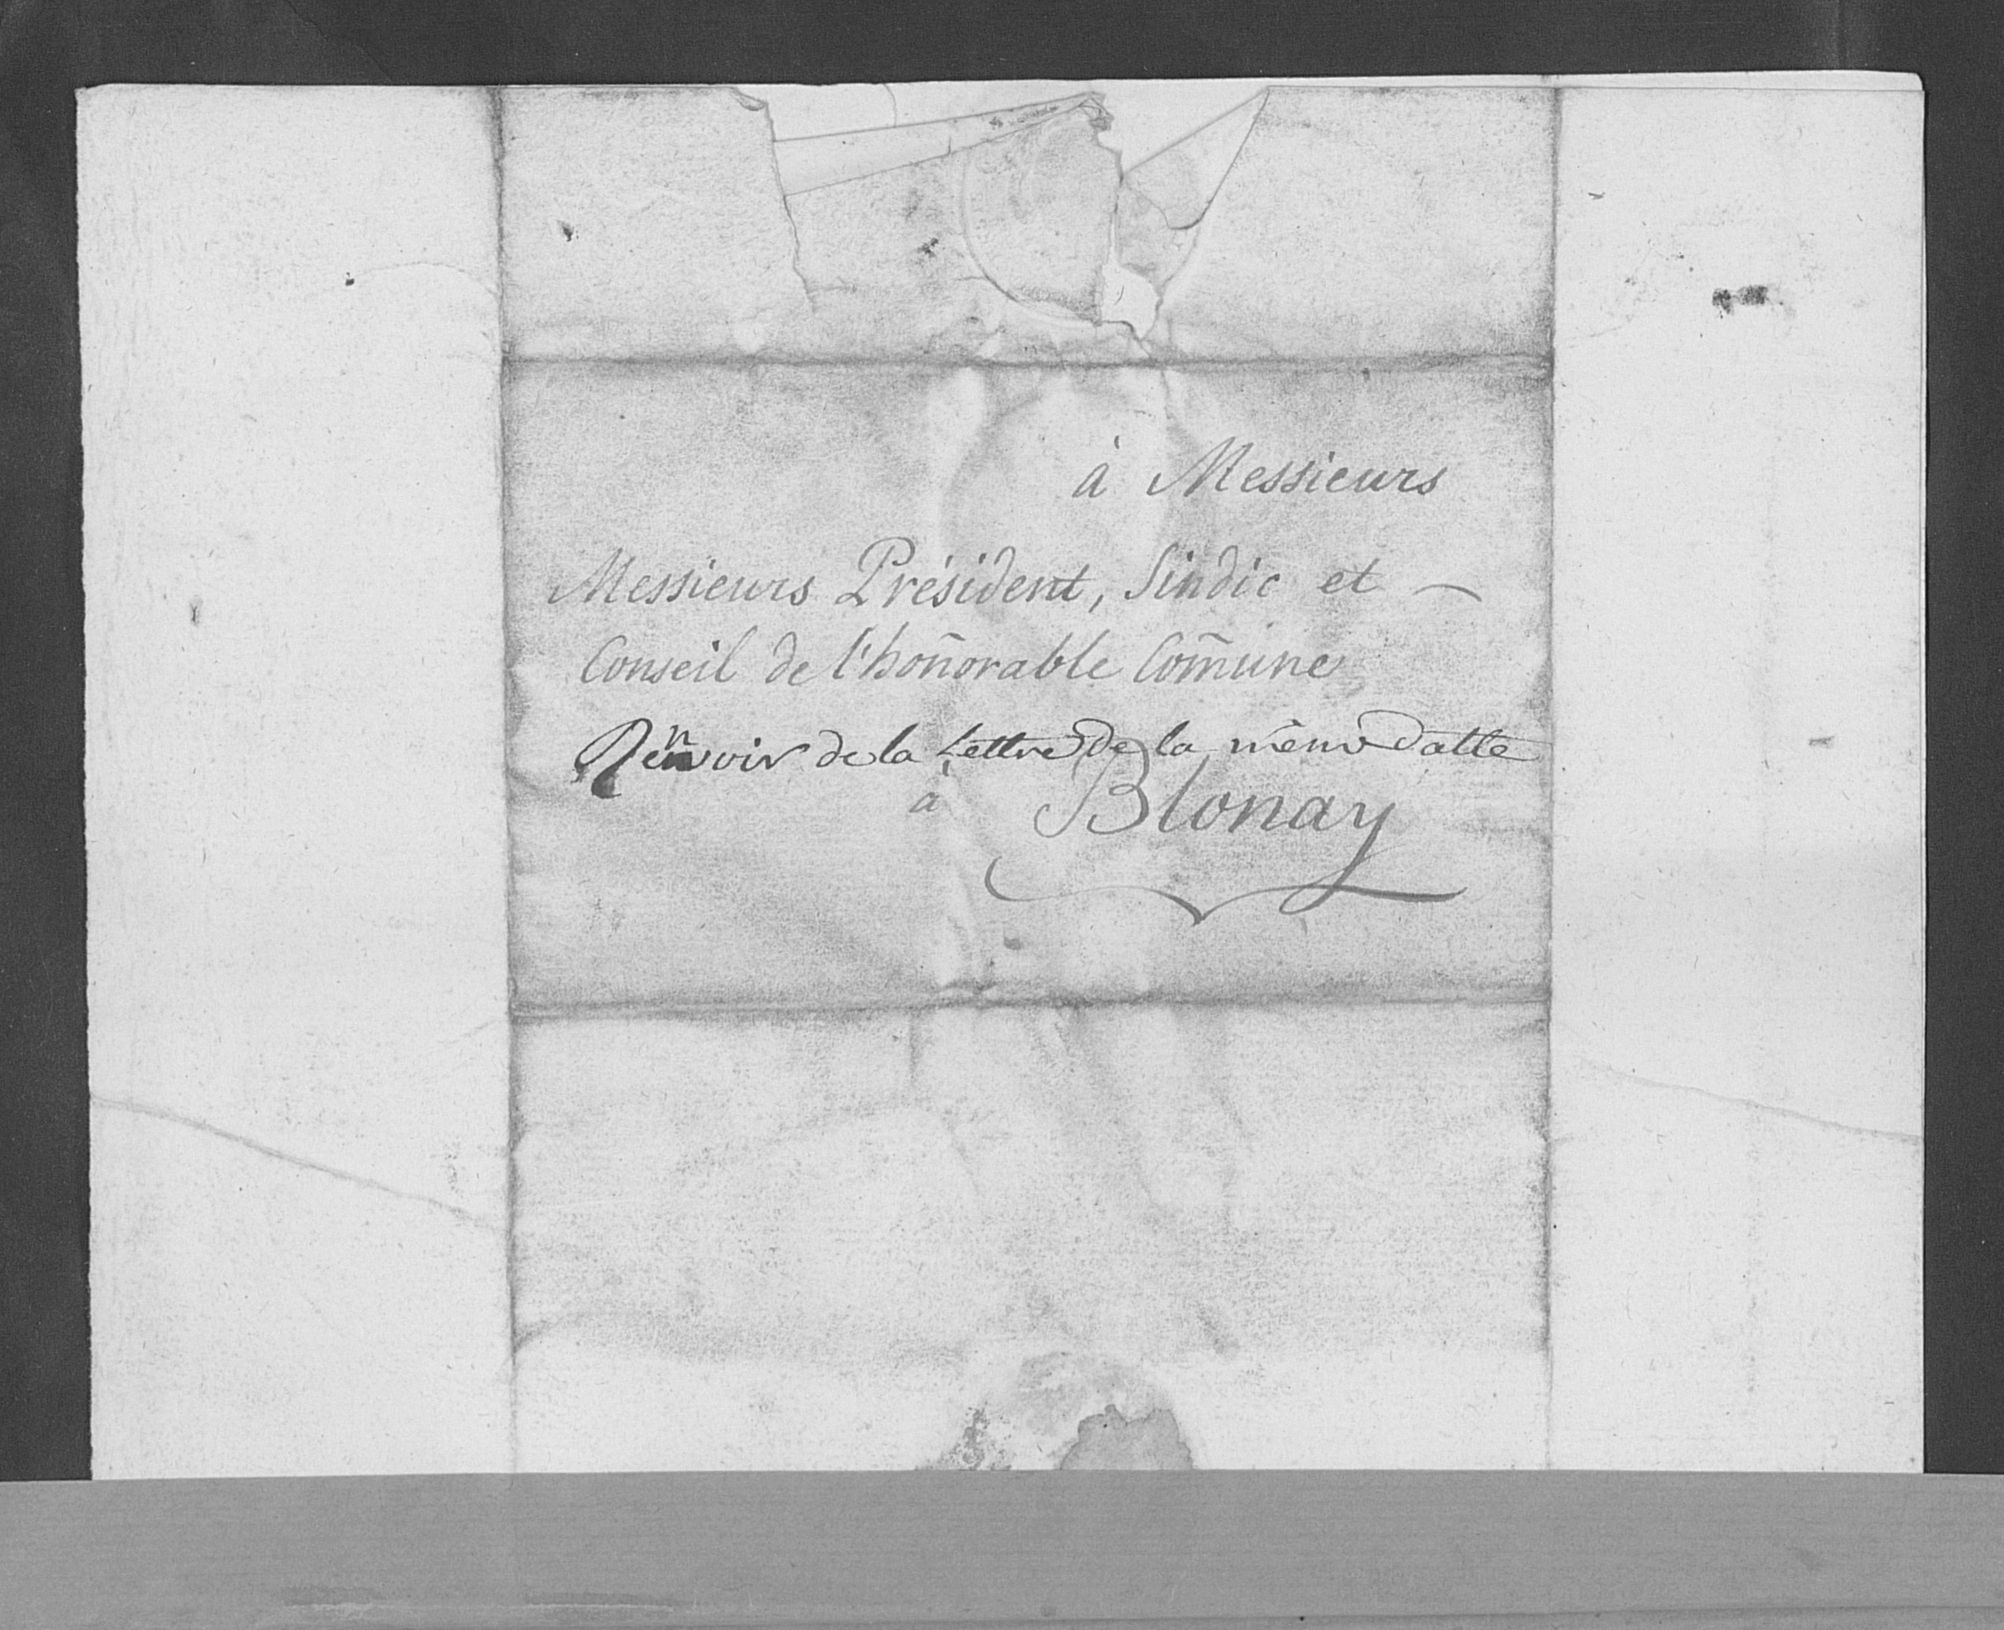 à Messieurs
Messieurs Président, Sindic et —
Conseil de l'hoñorable Com̃une
Renvoir de la Lettre de la même datte
à Blonay